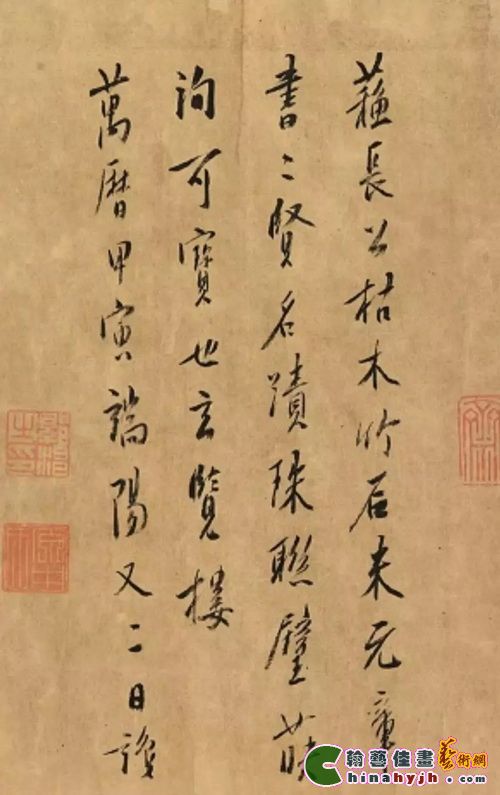 蘓長公枯木竹石米元章
書二賢名蹟珠聯璧
洵可寶也玄覽樓
萬曆甲寅端陽又二日
翰藝佳畫藝術網
Chinahyjh.com